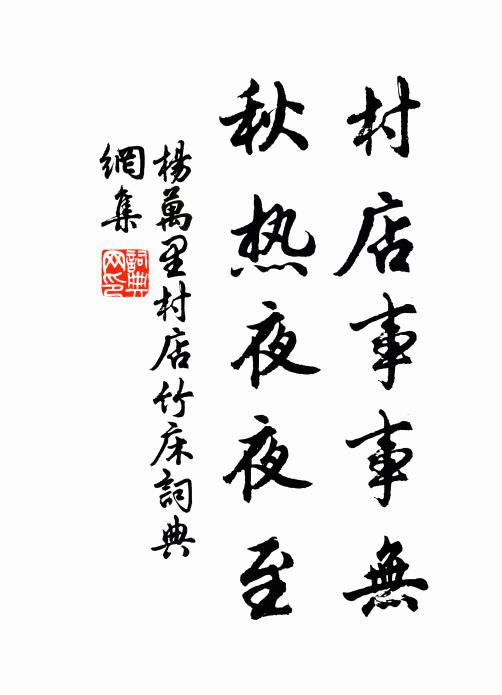 村店事事無
秋热夜夜至
楊萬里村店竹床詞典
網集
詞典
网印